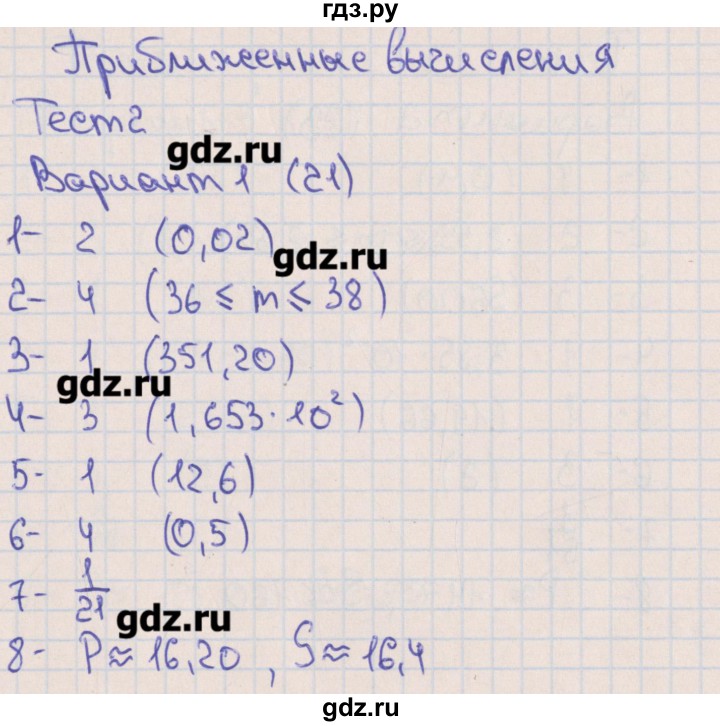 гдз.ру
Приближенные вычисления
Тест 2
gdz.ru
Вариант 1 (21)
1- 2 (0,02)
gdz.ru
2- 4 (36 ≤ m ≤ 38)
3- 1 (351,20)
gdz.ru
4- 3 (1,653·10²)
5- 1 (12,6)
6- 4 (0,5)
7- 1/21
gdz.ru
8- P≈16,20, S≈16,4
gdz.ru